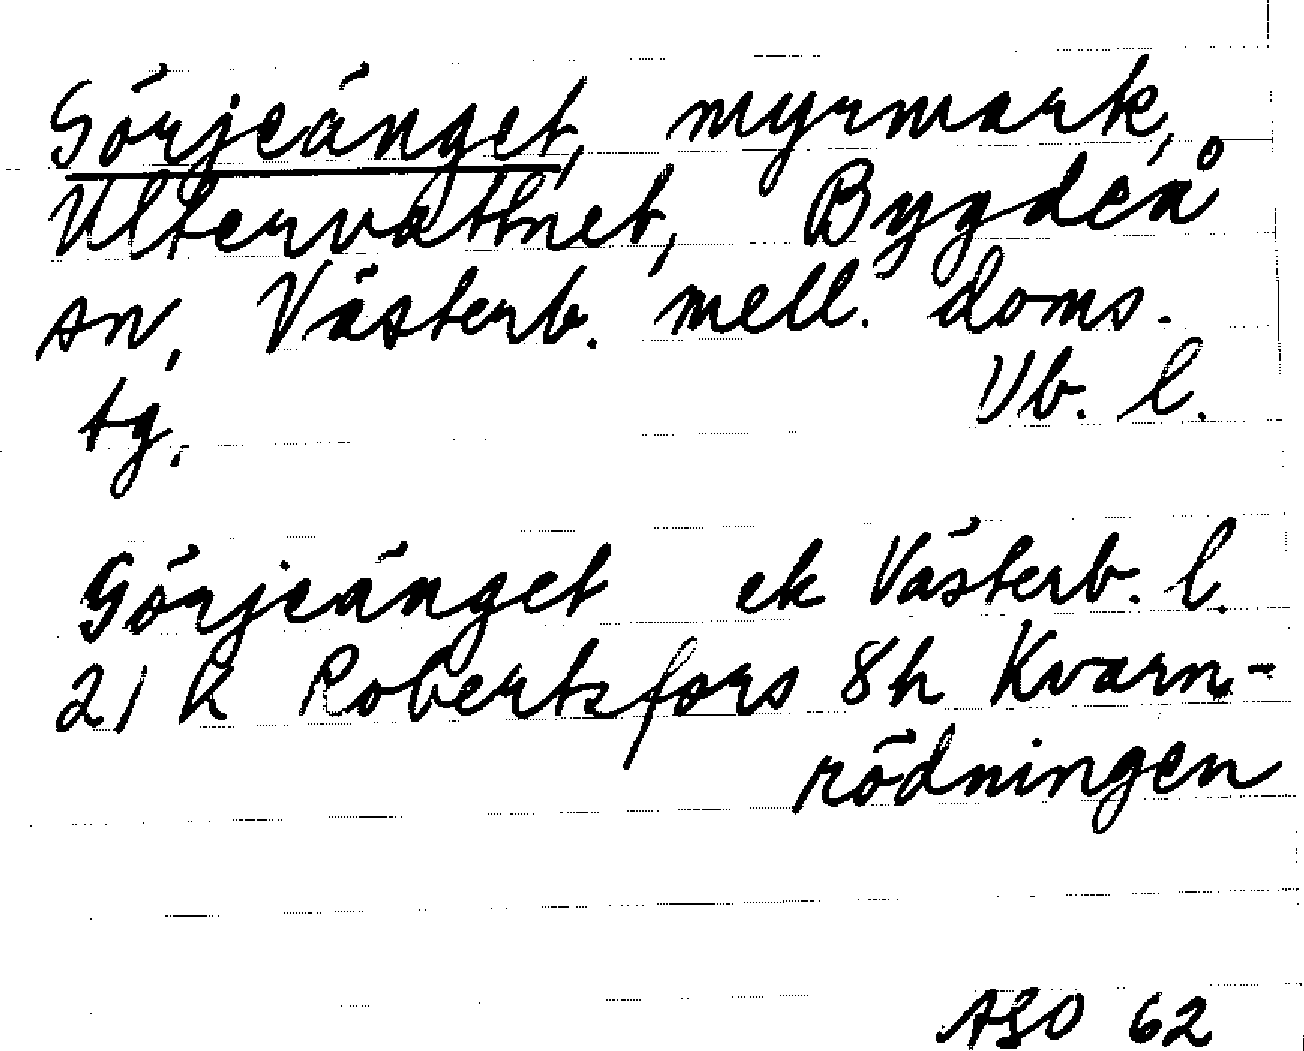 Görjeänget, myrmark,
Ultervattnet, Bygdeå
sn, Västerb. mell. doms.
tg. Vb. l.
Görjeänget ek Västerb. l.
21 k Robertsfors 8h Kvarn-
rödningen
ASO 62